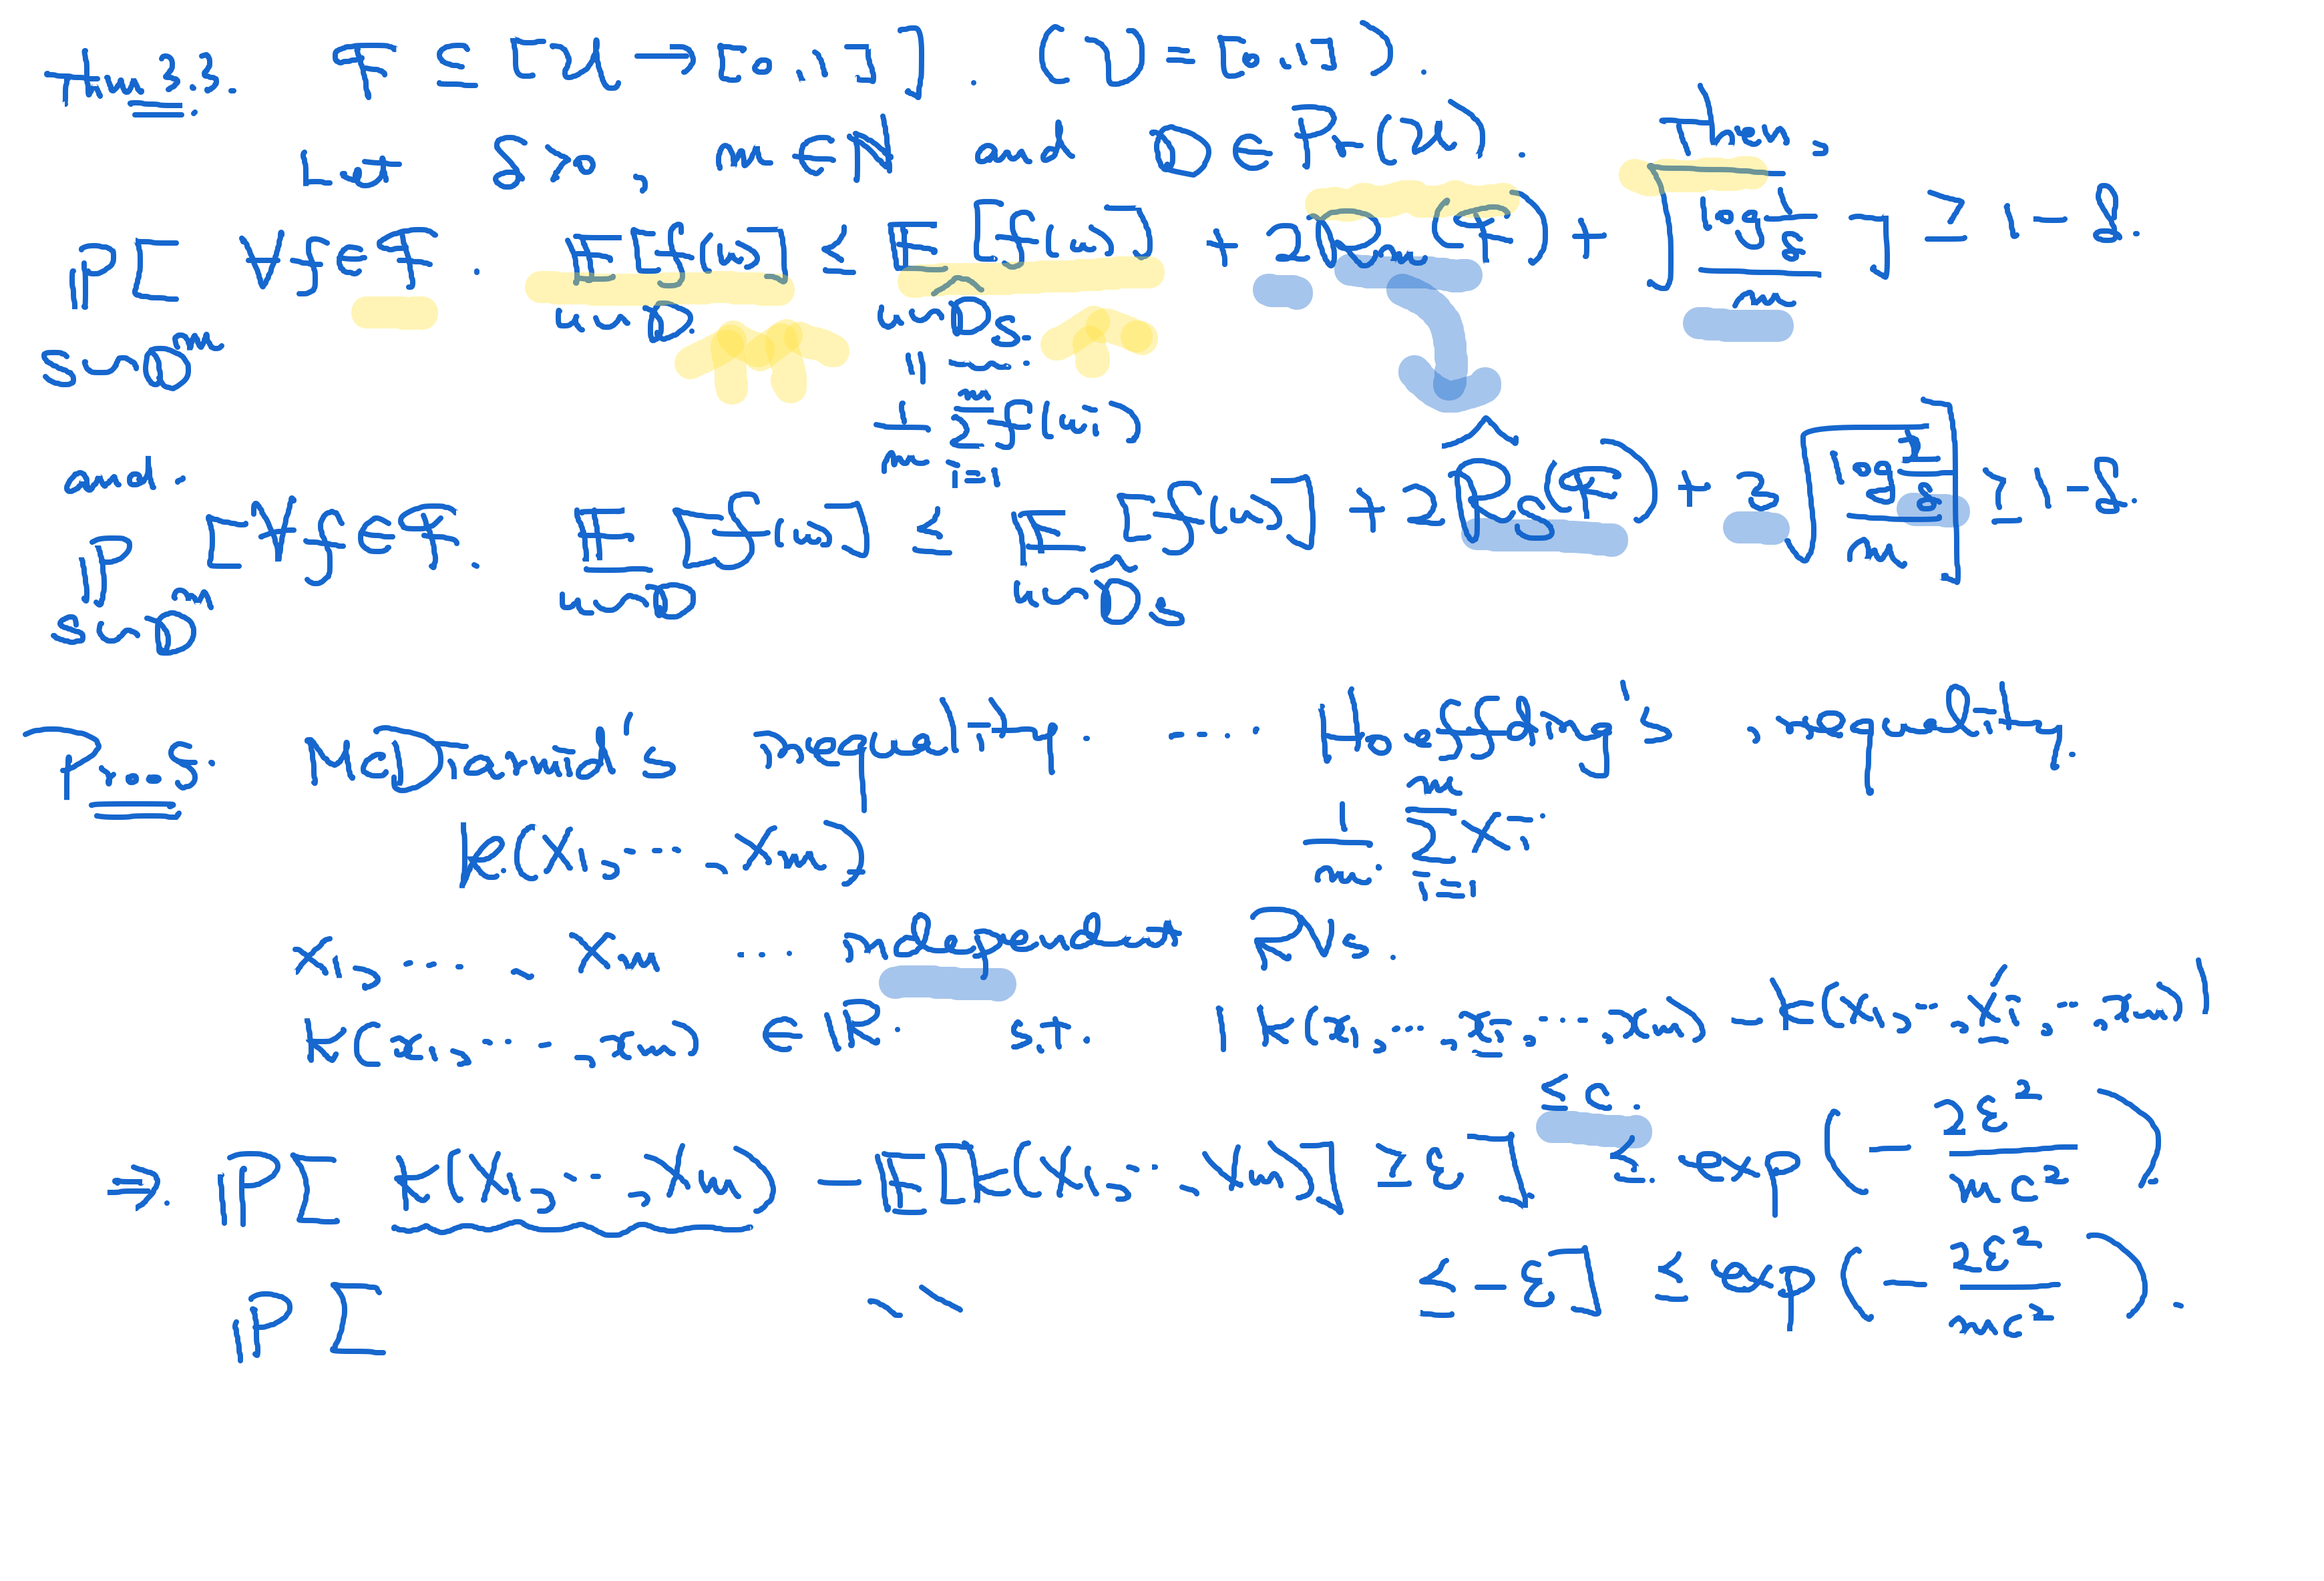 Thm 3.3. F ⊆ [U → [0,1]]. (V = [0,1]).
Let δ>0, m ∈ ℕ and D ∈ Pr(U). Then,
P [ ∀f∈F. E[f(u)] ≤ E[f(u)] + 2 R_m(F) + √(log 1/δ / m) ] ≥ 1-δ.
S~D^m u~D. u~D̂_S.
"
1/m Σ_{i=1}^m f(u_i)
and.
P [∀f∈F. E[f(u)] ≤ E[f(u)] + 2 R̂_S(F) + 3 √(log 2/δ / m)] ≥ 1-δ.
S~D^m u~D u~D̂_S
Proof. McDiarmid's inequality. .... Hoeffding's inequality.
k(X1, ..., Xm) 1/m Σ_{i=1}^m Xi.
X1, ..., Xm ... independent RVs.
k(x1, ..., xm) ∈ ℝ. s.t. | k(x1, ..., xi, ..., xm) - k(x1, ..., xi', ..., xm) |
≤ c.
⇒. P[ k(X1, ..., Xm) - E[k(X1, ..., Xm)] ≥ ε ] ≤ exp( - 2ε² / mc² )
P [ \\ ≤ -ε] ≤ exp( - 2ε² / mc² ).